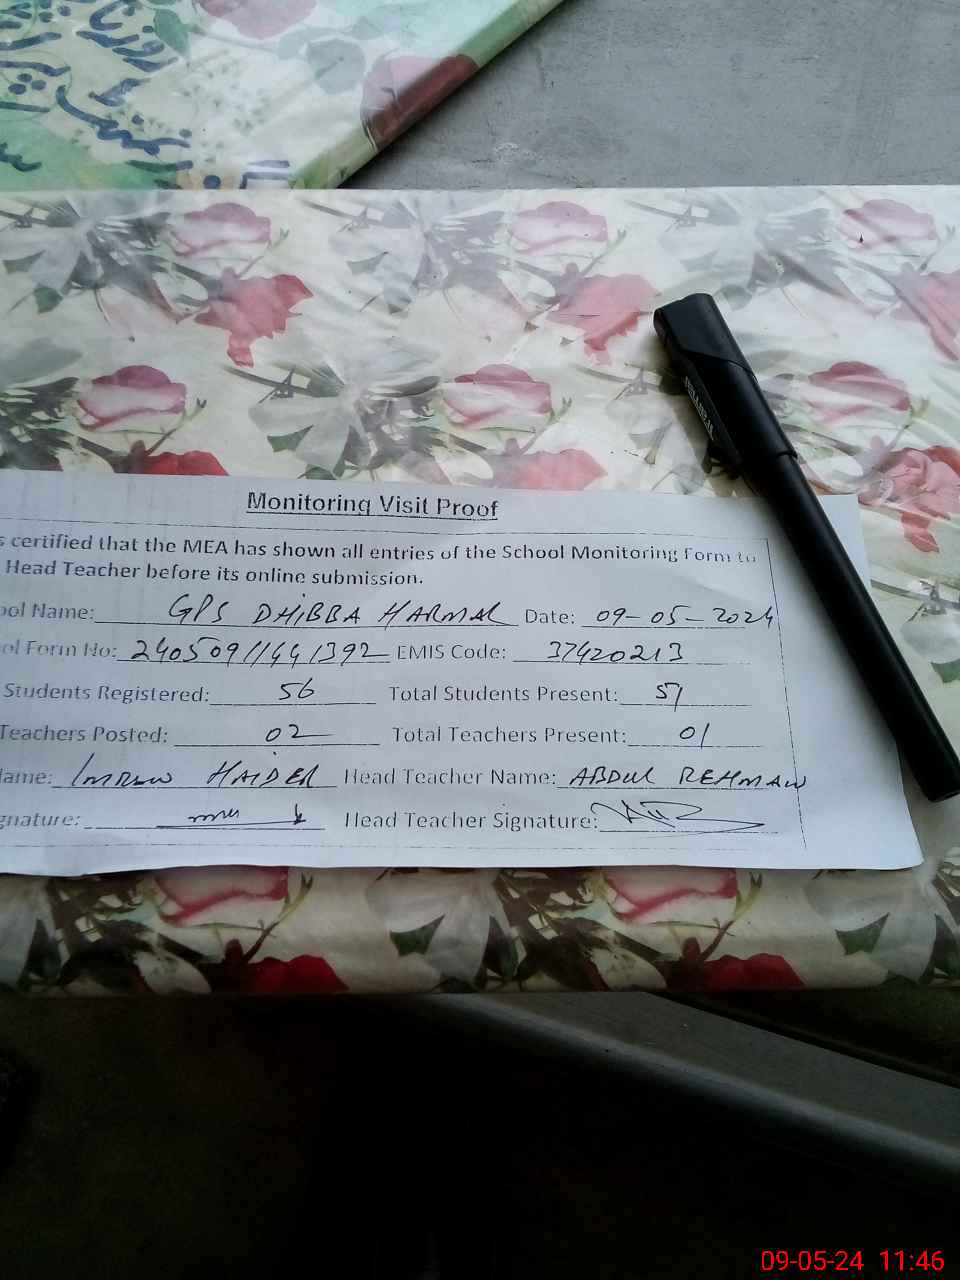 Monitoring Visit Proof
s certified that the MEA has shown all entries of the School Monitoring Form to
Head Teacher before its online submission.
ool Name: GPS DHIBBA HARMAL Date: 09-05-2024
ol Form No: 24050911441392 EMIS Code: 37420213
Students Registered: 56 Total Students Present: 51
Teachers Posted: 02 Total Teachers Present: 01
Name: IMRAN HAIDER Head Teacher Name: ABDUL REHMAN
gnature: Head Teacher Signature:
09-05-24 11:46